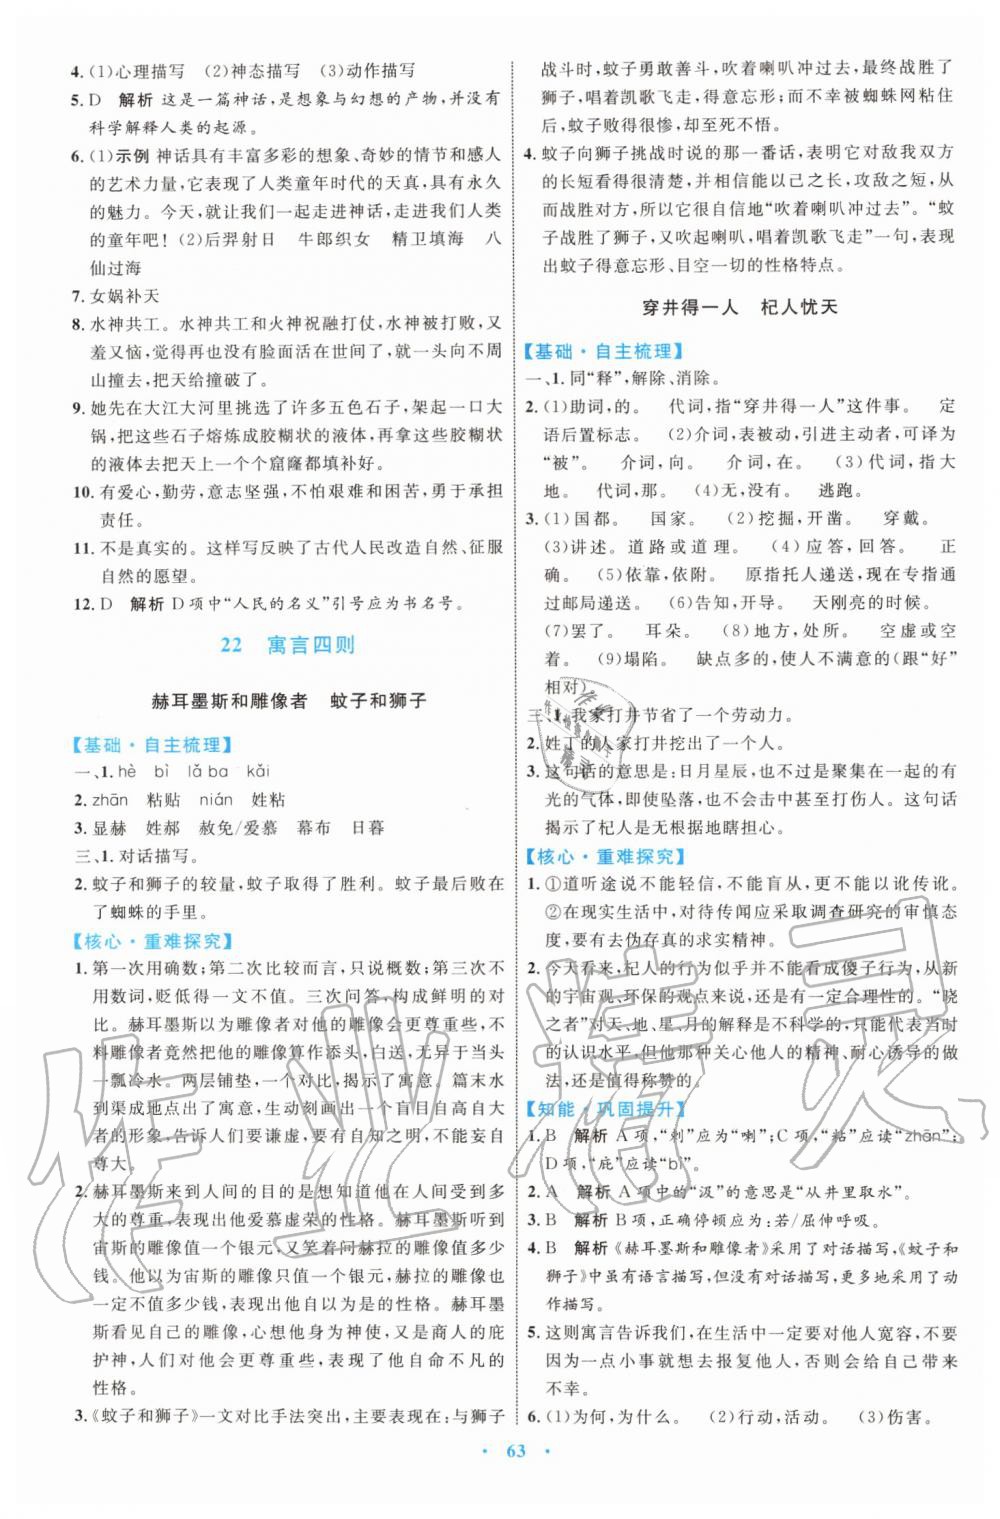 4.(1)心理描写　(2)神态描写　(3)动作描写
5. D　解析　这是一篇神话,是想象与幻想的产物,并没有
科学解释人类的起源。
6.(1)示例 神话具有丰富多彩的想象、奇妙的情节和感人
的艺术力量,它表现了人类童年时代的天真,具有永久
的魅力。今天,就让我们一起走进神话,走进我们人类
的童年吧!(2)后羿射日　牛郎织女　精卫填海　八
仙过海
7. 女娲补天
8. 水神共工。水神共工和火神祝融打仗,水神被打败,又
羞又恼,觉得再也没有脸面活在世间了,就一头向不周
山撞去,把天给撞破了。
9. 她先在大江大河里挑选了许多五色石子,架起一口大
锅,把这些石子熔炼成胶糊状的液体,再拿这些胶糊状
的液体去把天上一个个窟窿都填补好。
10. 有爱心,勤劳,意志坚强,不怕艰难和困苦,勇于承担
责任。
11. 不是真实的。这样写反映了古代人民改造自然、征服
自然的愿望。
12. D　解析　D 项中“人民的名义”引号应为书名号。
22　寓言四则
赫耳墨斯和雕像者　蚊子和狮子
【基础·自主梳理】
一、1. hè　bì　lǎ ba　kǎi
2. zhān　粘贴　nián　姓粘
3. 显赫　姓郝　赦免/爱慕　幕布　日暮
三、1. 对话描写。
2. 蚊子和狮子的较量,蚊子取得了胜利。蚊子最后败在
了蜘蛛的手里。
【核心·重难探究】
1. 第一次用确数;第二次比较而言,只说概数;第三次不
用数词,贬得一文不值。三次问答,构成鲜明的对
比。赫耳墨斯以为雕像者对他的雕像会更尊重些,不
料雕像者竟然把他的雕像算作添头,白送,无异于当头
一瓢冷水。两层铺垫,一个结果,揭示了寓意。篇末水
到渠成地点出了寓意,生动刻画了一个妄自尊大者
的形象,告诉人们要谦虚,要有自知之明,不能妄自
尊大。
2. 赫耳墨斯来到人间的目的是想知道他在人间受到多
大的尊重,表现了他爱慕虚荣的性格。赫耳墨斯听到
宙斯的雕像值一个银元,又笑着问赫拉的雕像值多少
钱,他以为宙斯的雕像只值一个银元,赫拉的雕像也
一定不值多少钱,表现出他自以为是的性格。赫耳墨
斯看见自己的雕像,心想他身为神使,又是商人的庇
护神,人们对他会更尊重些,表现了他盲目自信的
性格。
3.《蚊子和狮子》一文对比手法突出,主要表现在:与狮子
战斗时,蚊子勇敢善斗,吹着喇叭冲过去,最终战胜了
狮子,唱着凯歌飞走,得意忘形;而不幸被蜘蛛网粘住
后,蚊子败得很惨,却至死不悟。
4. 蚊子向狮子挑战时说的那一番话,表明它对敌我双方
的长短看得很清楚,并相信能以己之长,攻敌之短,从
而战胜对方,所以它很自信地“吹着喇叭冲过去”。“蚊
子战胜了狮子,又吹起喇叭,唱着凯歌飞走”一句,表现
出蚊子得意忘形、目空一切的性格特点。
穿井得一人　杞人忧天
【基础·自主梳理】
一、1. 同“释”,解除、消除。
2.(1)助词,的。　代词,指“穿井得一人”这件事。　定
语后置标志。　(2)介词,表被动,引进主动者,可译为
“被”。　介词,向。　介词,在。　(3)代词,指大
地。　代词,那。　(4)无,没有。　逃跑。
3.(1)国都。　国家。　(2)挖掘,开凿。　穿戴。
(3)讲述。道路或道理。　(4)应答,回答。　正
确。　(5)依靠,依附。　原指托人递送,现在专指通
过邮局递送。　(6)告知,开导。　天刚亮的时候。
(7)罢了。　耳朵。　(8)地方,处所。　空虚或空
着。　(9)塌陷。　缺点多的,使人不满意的(跟“好”
相对)
三、1. 我家打井节省了一个劳动力。
2. 姓丁的人家打井挖出了一个人。
3. 这句话的意思是:日月星辰,也不过是聚积在一起的有
光的气体,即使坠落,也不会击中甚至打伤人。这句话
揭示了杞人是无根据地瞎担心。
【核心·重难探究】
1. ①道听途说不能轻信,不能盲从,更不能以讹传讹。
②在现实生活中,对待传闻应采取调查研究的审慎态
度,要有去伪存真的求实精神。
2. 今天看来,杞人的行为似乎并不能看成傻子行为,从新
的宇宙观、环保的观点来看,还是有一定合理性的。“晓
之者”对天、地、星、月的解释是不科学的,只能代表当时
的认识水平,但他那种关心他人的精神、耐心诱导的做
法,还是值得称赞的。
【知能·巩固提升】
1. B　解析　A 项,“刺”应为“喇”;C 项,“粘”应读“zhān”;
D 项,“庇”应读“bì”。
2. A　解析　A 项中的“汲”的意思是“从井里取水”。
3. B　解析　B 项,正确停顿应为:若/屈伸呼吸。
4. B　解析　《赫耳墨斯和雕像者》采用了对话描写,《蚊子和
狮子》中虽有语言描写,但没有对话描写,更多地采用了动
作描写。
5. 这则寓言告诉我们,在生活中一定要对他人宽容,不要
因为一点小事就去报复他人,否则就会给自己带来
不幸。
6.(1)为何,为什么。　(2)行动,活动。　(3)伤害。
· 63 ·
作业精灵